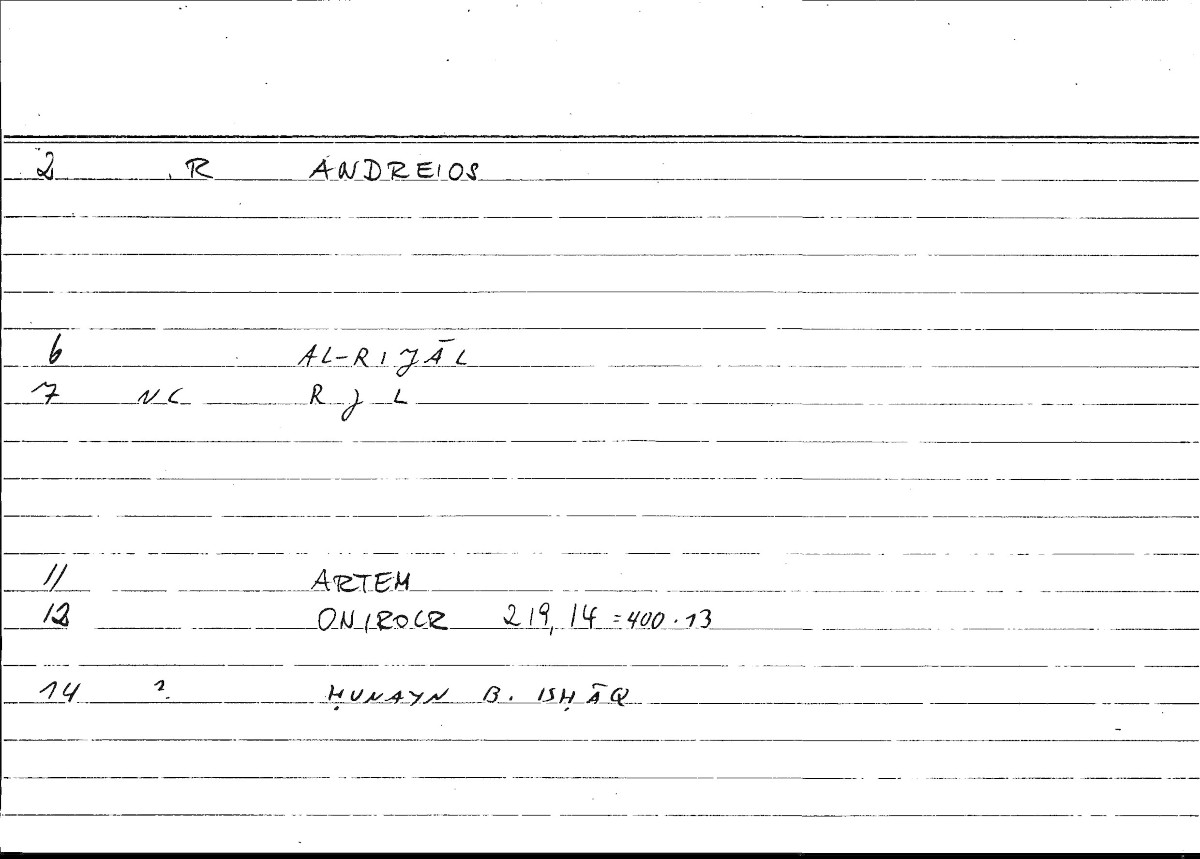 2 R ANDREIOS
6 AL-RIJĀL
7 NC R J L
11 ARTEM
12 ONIROCR 219, 14 = 400.13
14 2. ḤUNAYN B. ISḤĀQ